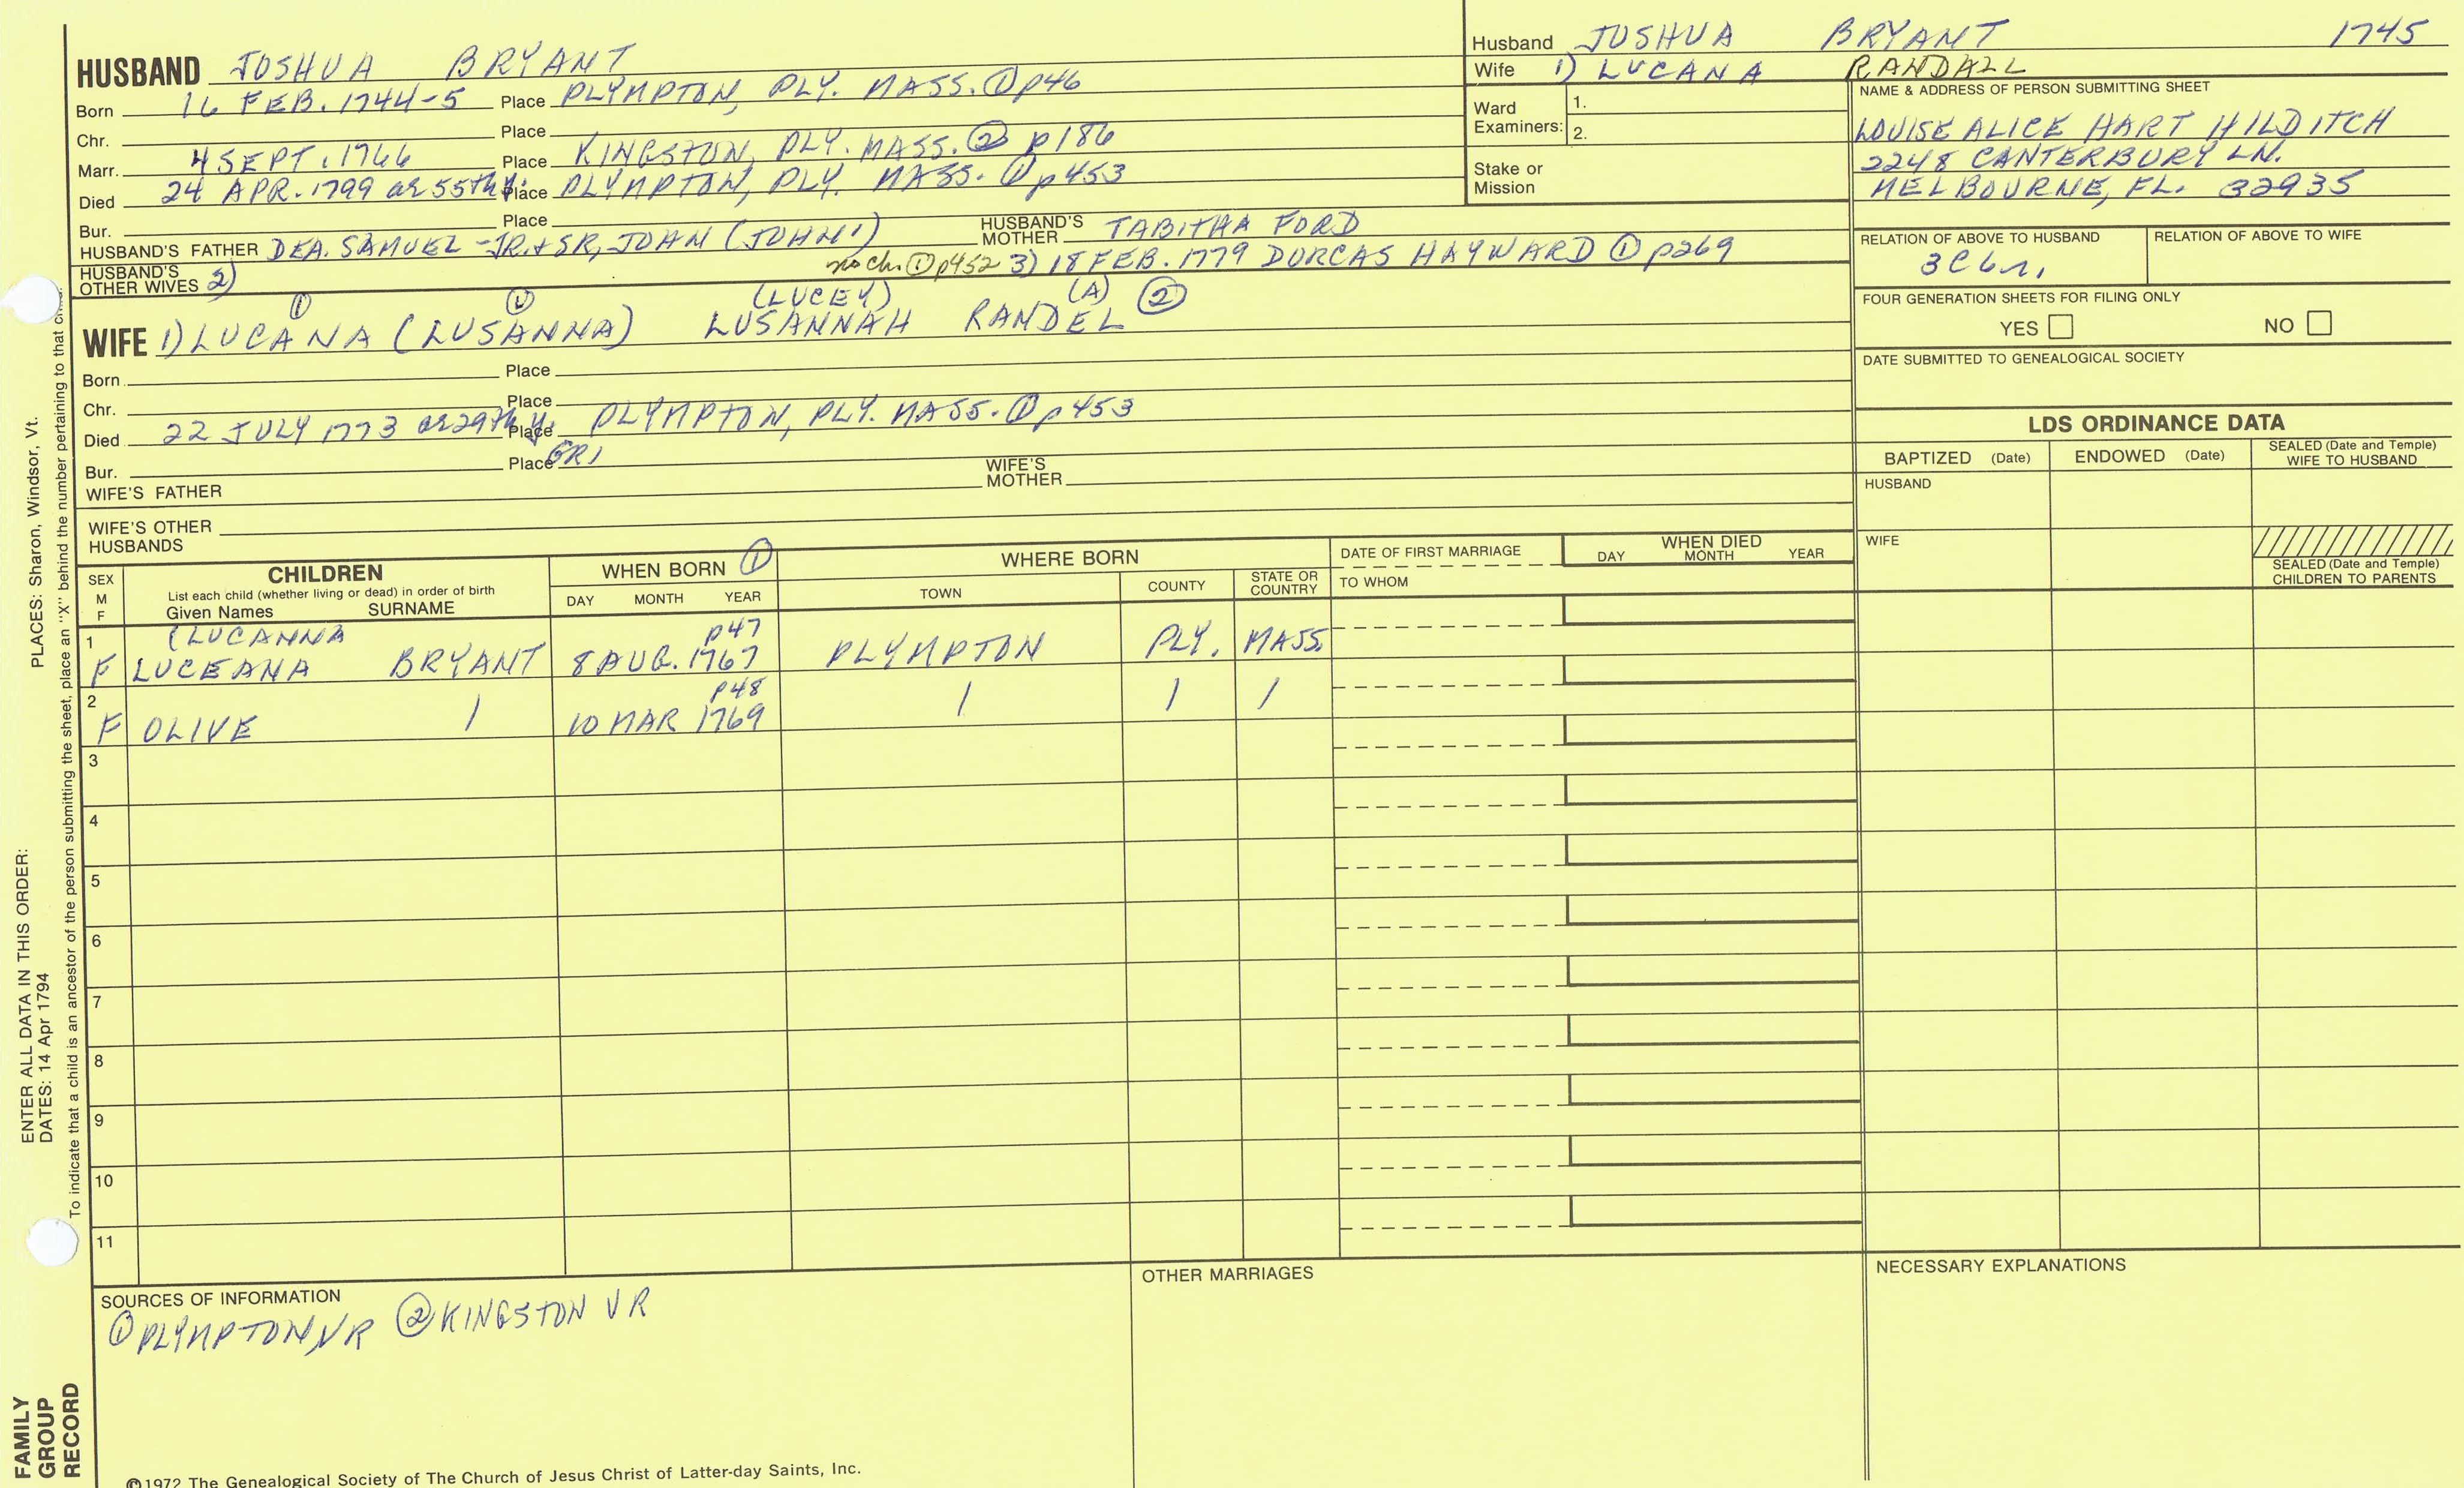 HUSBAND JOSHUA BRYANT
Born 16 FEB. 1744-5 Place PLYMPTON, PLY. MASS. ① p46
Chr. Place
Marr. 4 SEPT. 1766 Place KINGSTON, PLY. MASS. ② p186
Died 24 APR. 1799 ae 55th y. Place PLYMPTON, PLY. MASS. ① p453
Bur. Place
HUSBAND'S FATHER DEA. SAMUEL -JR.+SR, JOHN (JOHN¹) HUSBAND'S MOTHER TABITHA FORD
HUSBAND'S OTHER WIVES 2) no ch. ① p452 3) 18 FEB. 1779 DORCAS HAYWARD ① p269
Husband JOSHUA BRYANT 1745
Wife 1) LUCANA RANDALL
Ward Examiners: 1.
2.
Stake or Mission
NAME & ADDRESS OF PERSON SUBMITTING SHEET
LOUISE ALICE HART HILDITCH
2248 CANTERBURY LN.
MELBOURNE, FL. 32935
RELATION OF ABOVE TO HUSBAND RELATION OF ABOVE TO WIFE
3C6r.
FOUR GENERATION SHEETS FOR FILING ONLY
YES NO
DATE SUBMITTED TO GENEALOGICAL SOCIETY
① ① (LUCEY) (A) ②
WIFE 1) LUCANA (LUSANNA) LUSANNAH RANDEL
Born Place
Chr. Place
Died 22 JULY 1773 ae 29th y. Place PLYMPTON, PLY. MASS. ① p453
Bur. Place GR1
WIFE'S FATHER WIFE'S MOTHER
WIFE'S OTHER HUSBANDS
LDS ORDINANCE DATA
BAPTIZED (Date) ENDOWED (Date) SEALED (Date and Temple) WIFE TO HUSBAND
HUSBAND
WIFE
SEALED (Date and Temple) CHILDREN TO PARENTS
SEX M F
CHILDREN
List each child (whether living or dead) in order of birth
Given Names SURNAME
WHEN BORN ①
DAY MONTH YEAR
WHERE BORN
TOWN COUNTY STATE OR COUNTRY
DATE OF FIRST MARRIAGE
TO WHOM
WHEN DIED
DAY MONTH YEAR
1 (LUCANNA p47
F LUCEANA BRYANT 8 AUG. 1767 PLYMPTON PLY. MASS.
2 p48
F OLIVE / 10 MAR 1769 / / /
3
4
5
6
7
8
9
10
11
SOURCES OF INFORMATION
① PLYMPTON VR ② KINGSTON VR
OTHER MARRIAGES
NECESSARY EXPLANATIONS
©1972 The Genealogical Society of The Church of Jesus Christ of Latter-day Saints, Inc.
FAMILY GROUP RECORD
ENTER ALL DATA IN THIS ORDER:
DATES: 14 Apr 1794
PLACES: Sharon, Windsor, Vt.
To indicate that a child is an ancestor of the person submitting the sheet, place an "X" behind the number pertaining to that